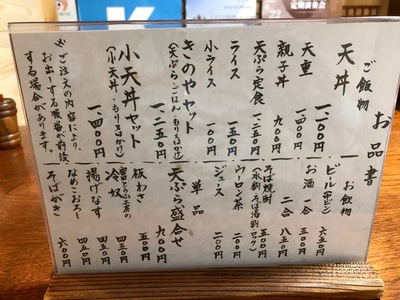 お品書
ご飯物
天丼 一、二〇〇円
天重 一、五〇〇円
親子丼 九〇〇円
天ぷら定食 一、二五〇円
ライス 一五〇円
小ライス 一〇〇円
きのやセット 一、二五〇円
(天ぷら・ごはん・もり又はかけ)
小天丼セット 一、一四〇〇円
(小天丼・もり又はかけ)
※ご注文の内容により、
お出しする順番が前後
する場合があります。
お飲物
ビール(中ビン) 六五〇円
お酒 一合 四五〇円
二合 八五〇円
そば焼酎 五〇〇円
(水割・そば湯割・ロック)
ウーロン茶 二〇〇円
ジュース 二〇〇円
単品
天ぷら盛合せ 九〇〇円
板わさ 五〇〇円
冷奴 四五〇円
揚げなす 四五〇円
なめこおろし 四五〇円
そばがき 六〇〇円
定期演奏会
22